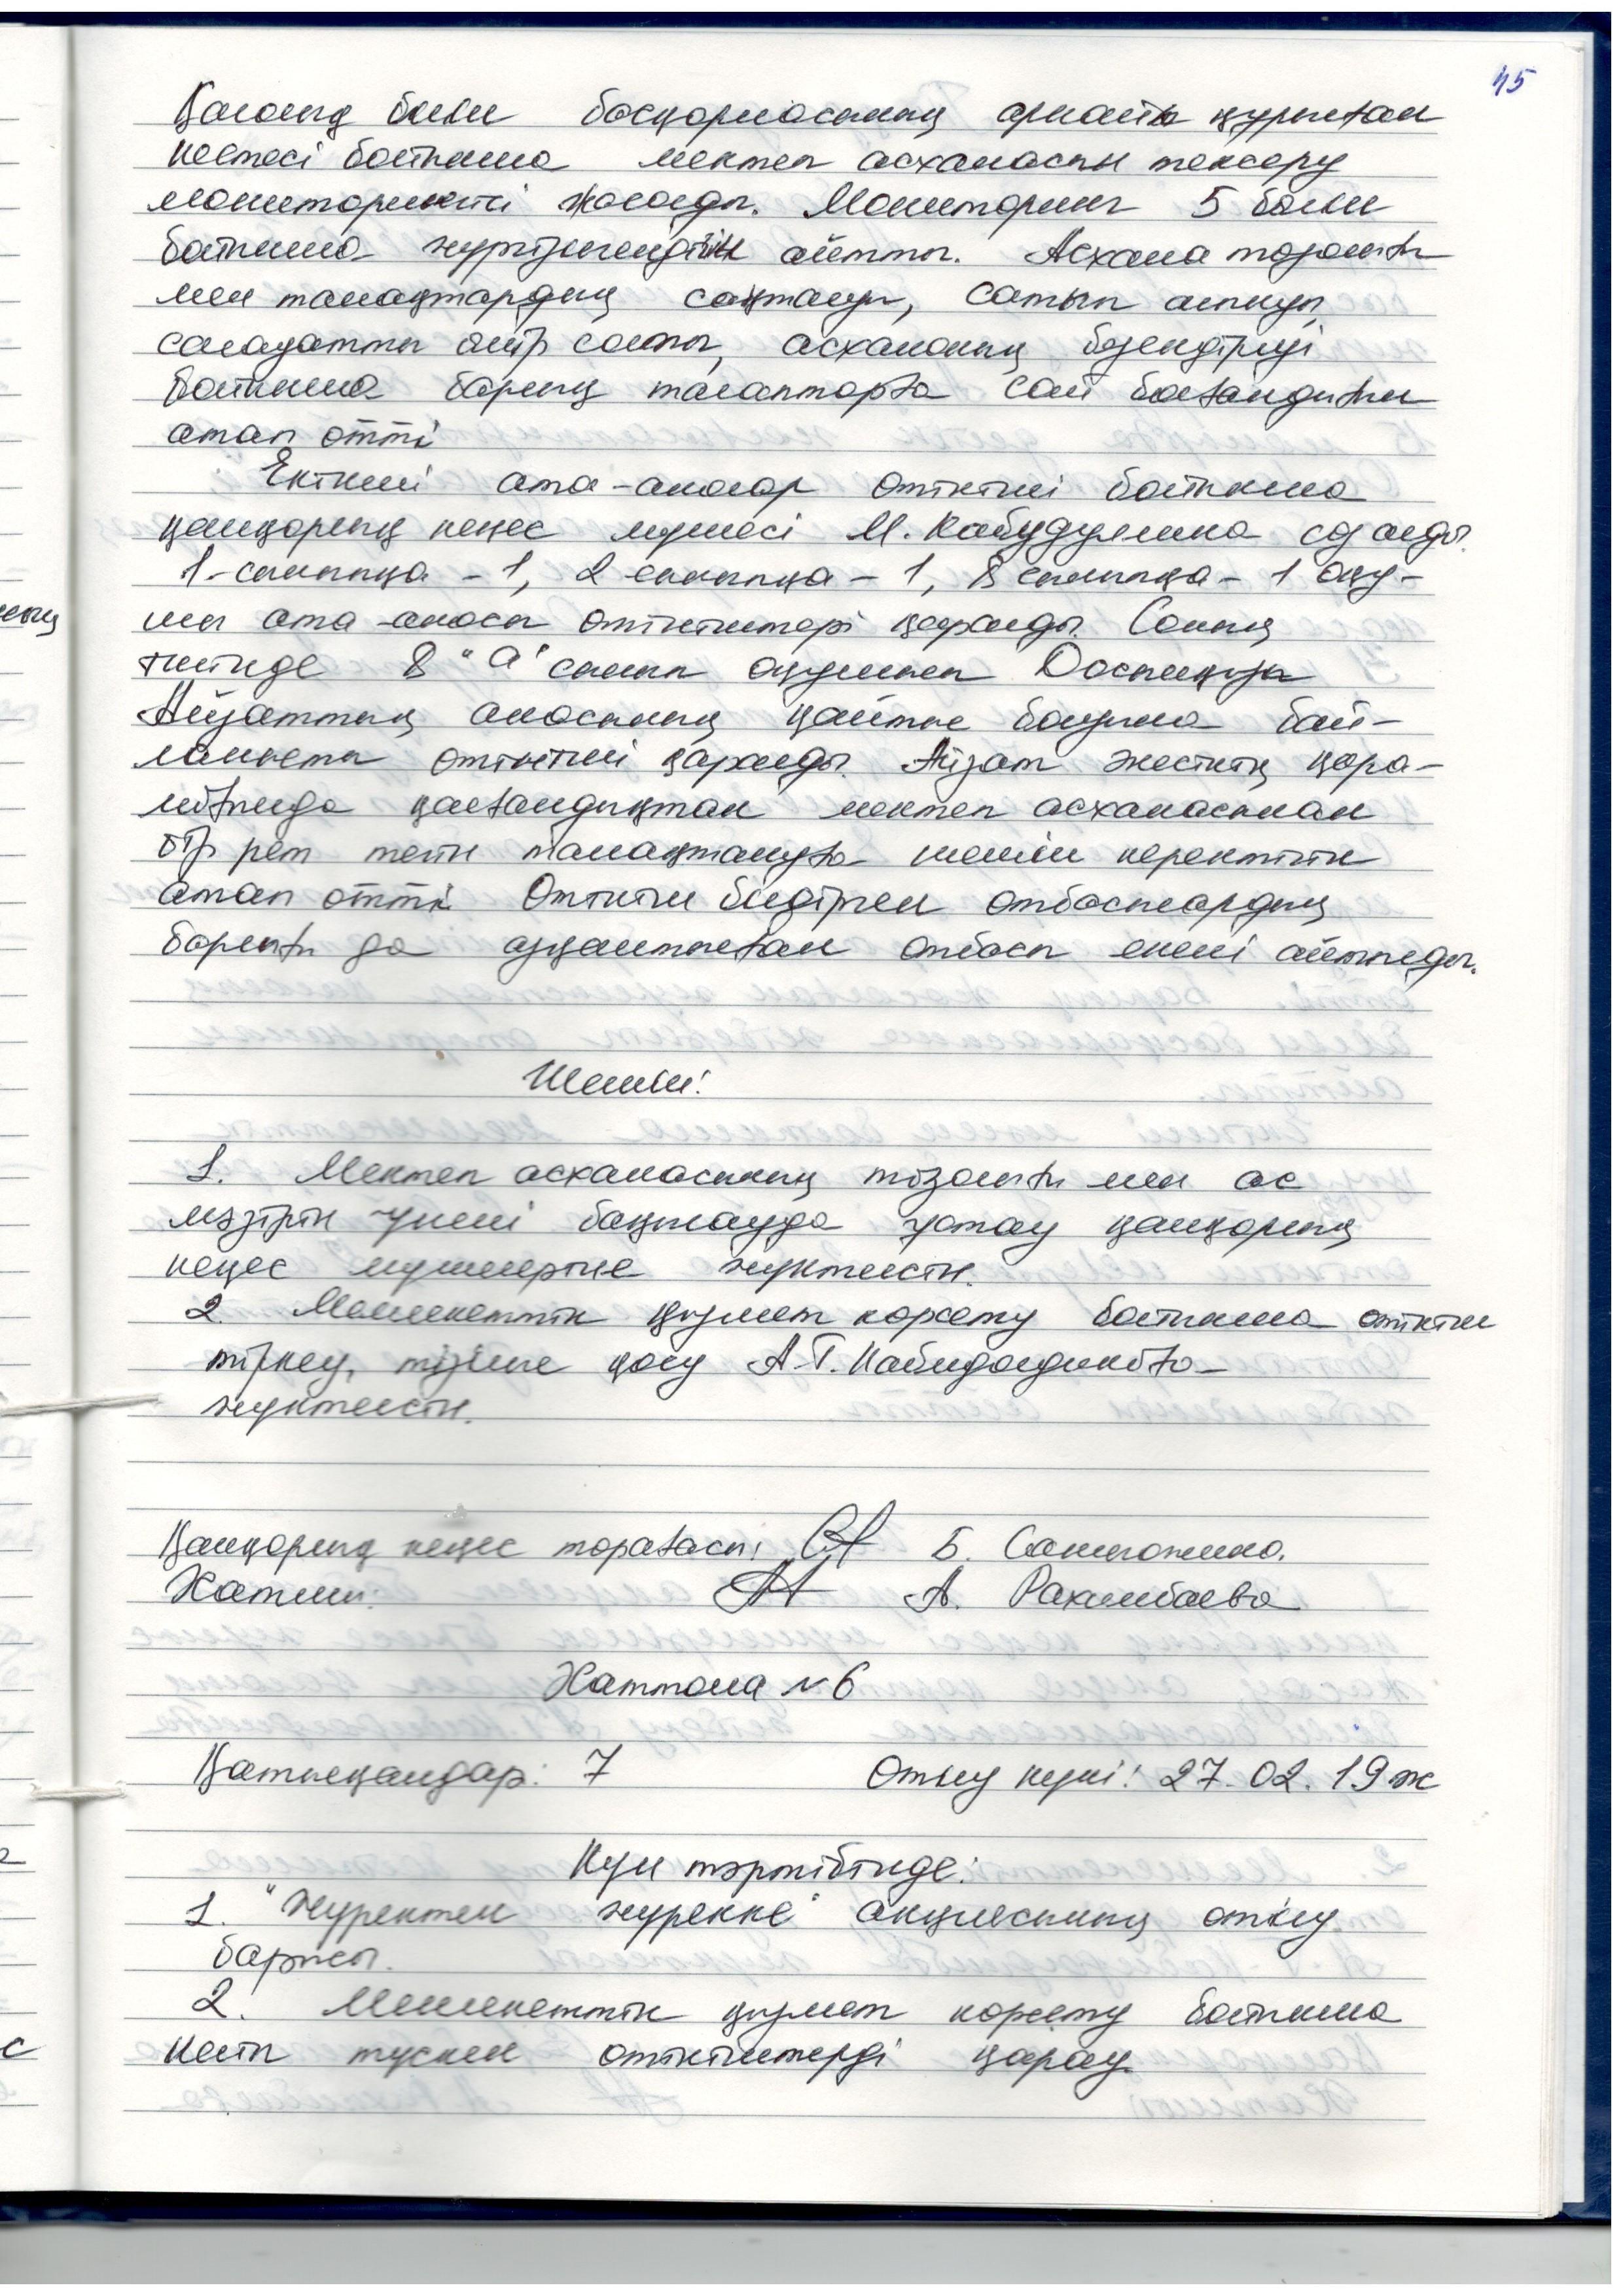 45
Қалалық білім басқармасының арнайы құрылған
кестесі бойынша мектеп асханасын тексеру
мониторингісі жасалды. Мониторинг 5 бөлім
бойынша жүргізілгендігін айтты. Асхана тазалығы
мен тағамдардың сақталуы, сатып алынуы,
санауатты өмір салты, асхананың безендірілуі
бойынша барлық талаптарға сай болғандығын
атап өтті.
Екінші ата-аналар өтініші бойынша
қамқорлық кеңес мүшесі М. Кабидулина сөз алды.
1-сыныпқа - 1, 2 сыныпқа - 1, 8 сыныпқа - 1 оқу-
шы ата-анасы өтініштері қаралды. Соның
ішінде 8 "а" сынып оқушысы Досымқызы
Айзаттың анасының қайтыс болуына бай-
ланысты өтініші қаралды. Айзат әкесінің қара-
мағында қалғандықтан мектеп асханасынан
бір рет тегін тамақтануға шешім керектігін
атап өтті. Өтініш білдірген отбасылардың
барлығы да аз қамтылған отбасы екені айтылды.
Шешім:
1. Мектеп асханасының тазалығы мен ас
мәзірін үнемі бақылауда ұстау қамқорлық
кеңес мүшелеріне жүктелсін.
2. Мемлекеттік қызмет көрсету бойынша өтініш
тіркеу, тізімге қосу А.Т. Кабидолдиноваға
жүктелсін.
Қамқорлық кеңес төрағасы: Б. Сатыгожина.
Хатшы: А. Рахимбаева
Хаттама №6
Қатысқандар: 7 Өтілу күні: 27.02.19ж
Күн тәртібінде:
1. "Жүректен жүрекке" акциясының өтілу
барысы.
2. Мемлекеттік қызмет көрсету бойынша
келіп түскен өтініштерді қарау.